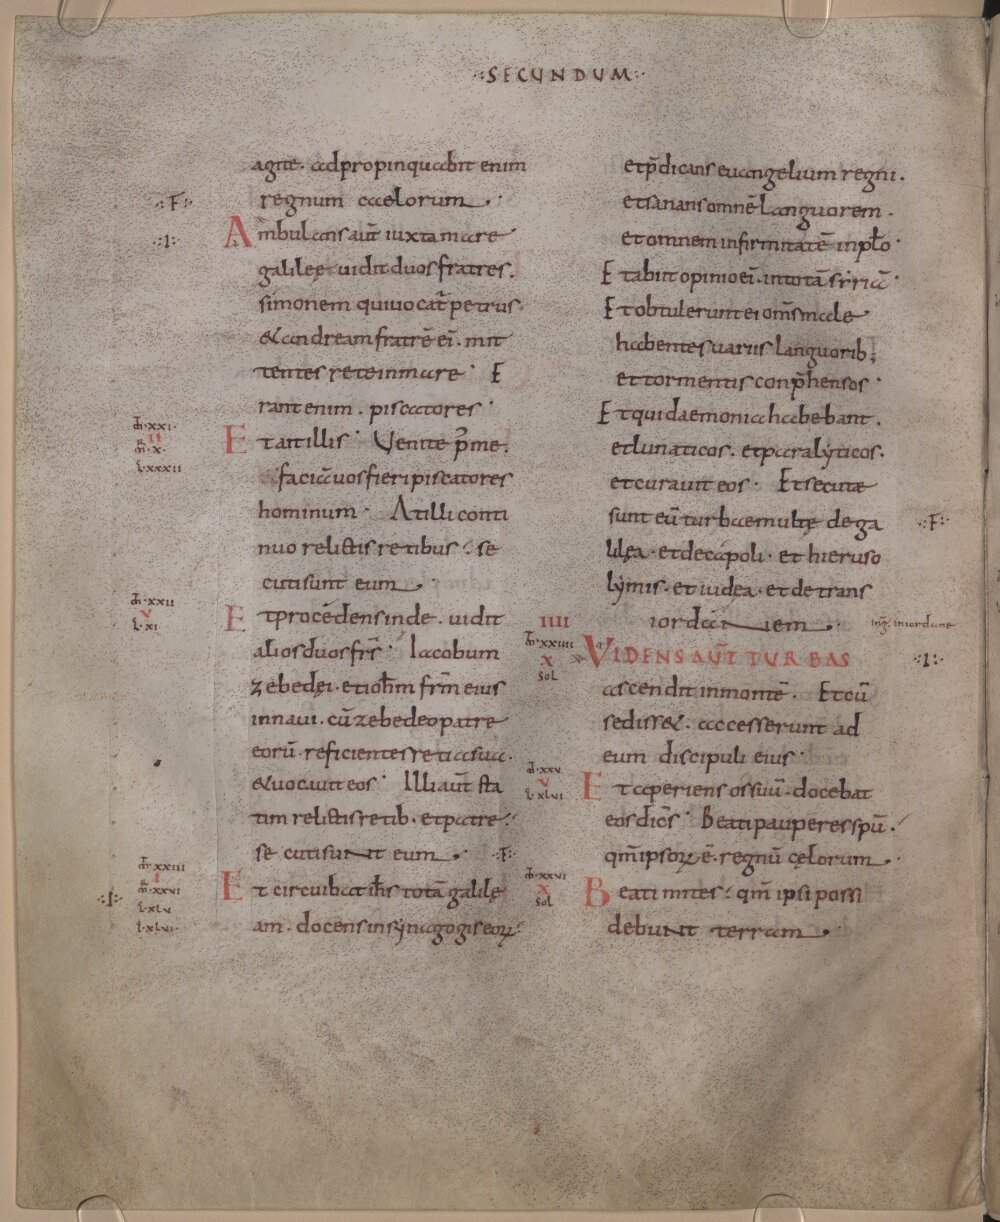 ·:SECUNDUM:·
agite. adpropinquabit enim
regnum caelorum.
·:F:·
·:I:·
Ambulans aut̄ iuxta mare
galileę. uidit duos fratres.
simonem qui uocat̄ petrus.
& andream fratrē ei᾽. mit
tentes rete in mare. E
rant enim. piscatores.
m̄·XXI·
II
m̄·X·
L·XXXII
Et ait illis. Venite p̄ me.
faciā uos fieri piscatores
hominum. At illi conti
nuo relictis retibus. se
cuti sunt eum.
m̄·XXII
V
L·XI
Et procedens inde. uidit
alios duos fr̄s. Iacobum
zebedęi. et ioh̄m fr̄m eius
in naui. cū zebedeo patre
eorū. reficientes retia sua.
& uocauit eos. Illi aut̄ sta
tim relictis retib. et patre.
se cuti sunt eum. ·:F:·
m̄·XXIII
I
m̄·XXVI
L·XLV
L·XLVI·
Et circuibat ih̄s totā galilę
am. docens in synagogis eoꝝ.
et p̄dicans euangelium regni.
et sanans omnē languorem.
et omnem infirmitatē in pl̄o.
Et abiit opinio ei᾽. in totā syriā.
Et obtulerunt ei om̄s male
habentes uariis languorib;
et tormentis conp̄hensos.
Et qui daemonia habebant.
et lunaticos. et paralyticos.
et curauit eos. Et secutæ
sunt eū turbae multę de ga
·:F:·
lilęa. et decapoli. et hieruso
lymis. et iudea. et de trans
iordaniem.
IIII
m̄·XXIIII
X
SOL
VIDENS AUT̄ TURBAS
·:I:·
ascendit in montē. Et cū
sediss&. accesserunt ad
eum discipuli eius.
m̄·XXV
V
L·XLVI
Et aperiens os suū. docebat
eos dicēs. Beati pauperes spū.
qm̄ ipsoꝝ ē. regnū cęlorum.
m̄·XXVI
X
SOL
Beati mites. qm̄ ipsi possi
debunt terram.